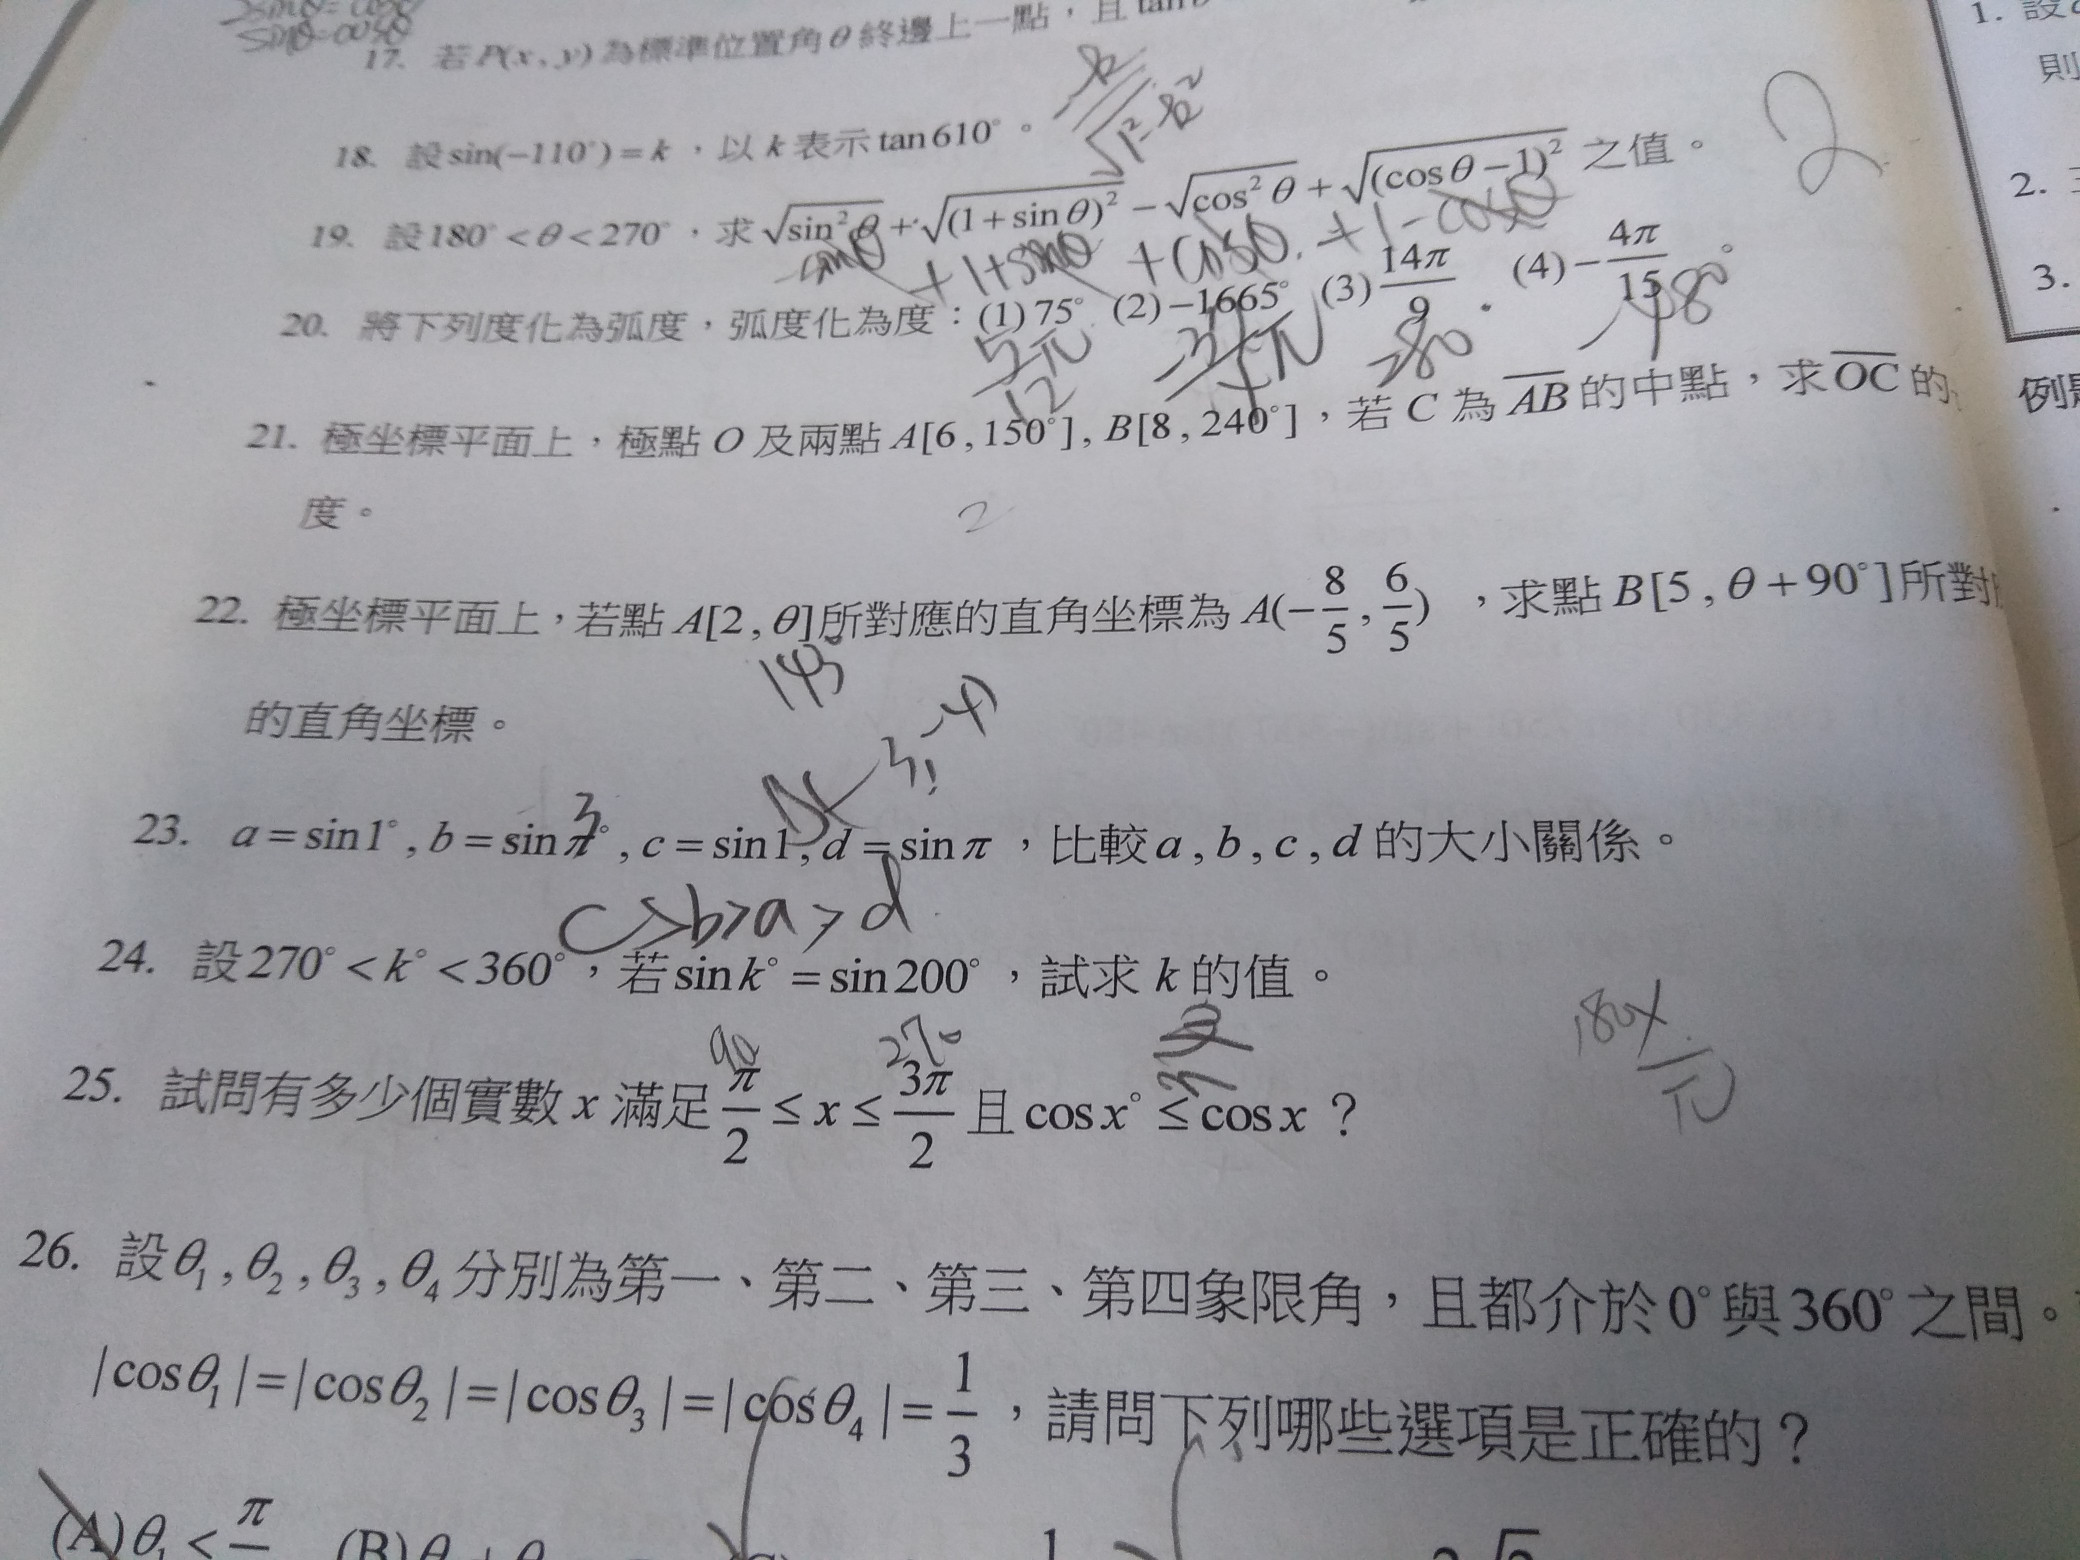 sinθ=cosθ
17. 若P(x,y)為標準位置角θ終邊上一點,且tanθ
18. 設sin(−110°)=k,以k表示tan610°。
k/√(1²−k²)
19. 設180°<θ<270°,求√(sin²θ)+√((1+sinθ)²)−√(cos²θ)+√((cosθ−1)²)之值。
2
−sinθ +1+sinθ +cosθ. +1−cosθ
20. 將下列度化為弧度,弧度化為度:(1)75° (2)−1665° (3)14π/9 (4)−4π/15
5π/12 −37π/4 280° −48°
21. 極坐標平面上,極點O及兩點A[6,150°],B[8,240°],若C為AB的中點,求OC的
度。
22. 極坐標平面上,若點A[2,θ]所對應的直角坐標為A(−8/5,6/5),求點B[5,θ+90°]所對
143°
的直角坐標。
−3,−4)
3
23. a=sin1°,b=sinπ°,c=sin1,d=sinπ,比較a,b,c,d的大小關係。
c>b>a>d
24. 設270°<k°<360°,若sink°=sin200°,試求k的值。
90 270
25. 試問有多少個實數x滿足π/2≤x≤3π/2且cosx°≤cosx?
180x/π
26. 設θ₁,θ₂,θ₃,θ₄分別為第一、第二、第三、第四象限角,且都介於0°與360°之間。
|cosθ₁|=|cosθ₂|=|cosθ₃|=|cosθ₄|=1/3,請問下列哪些選項是正確的?
(A)θ₁<π (B)
1. 設
則
2.
3.
例